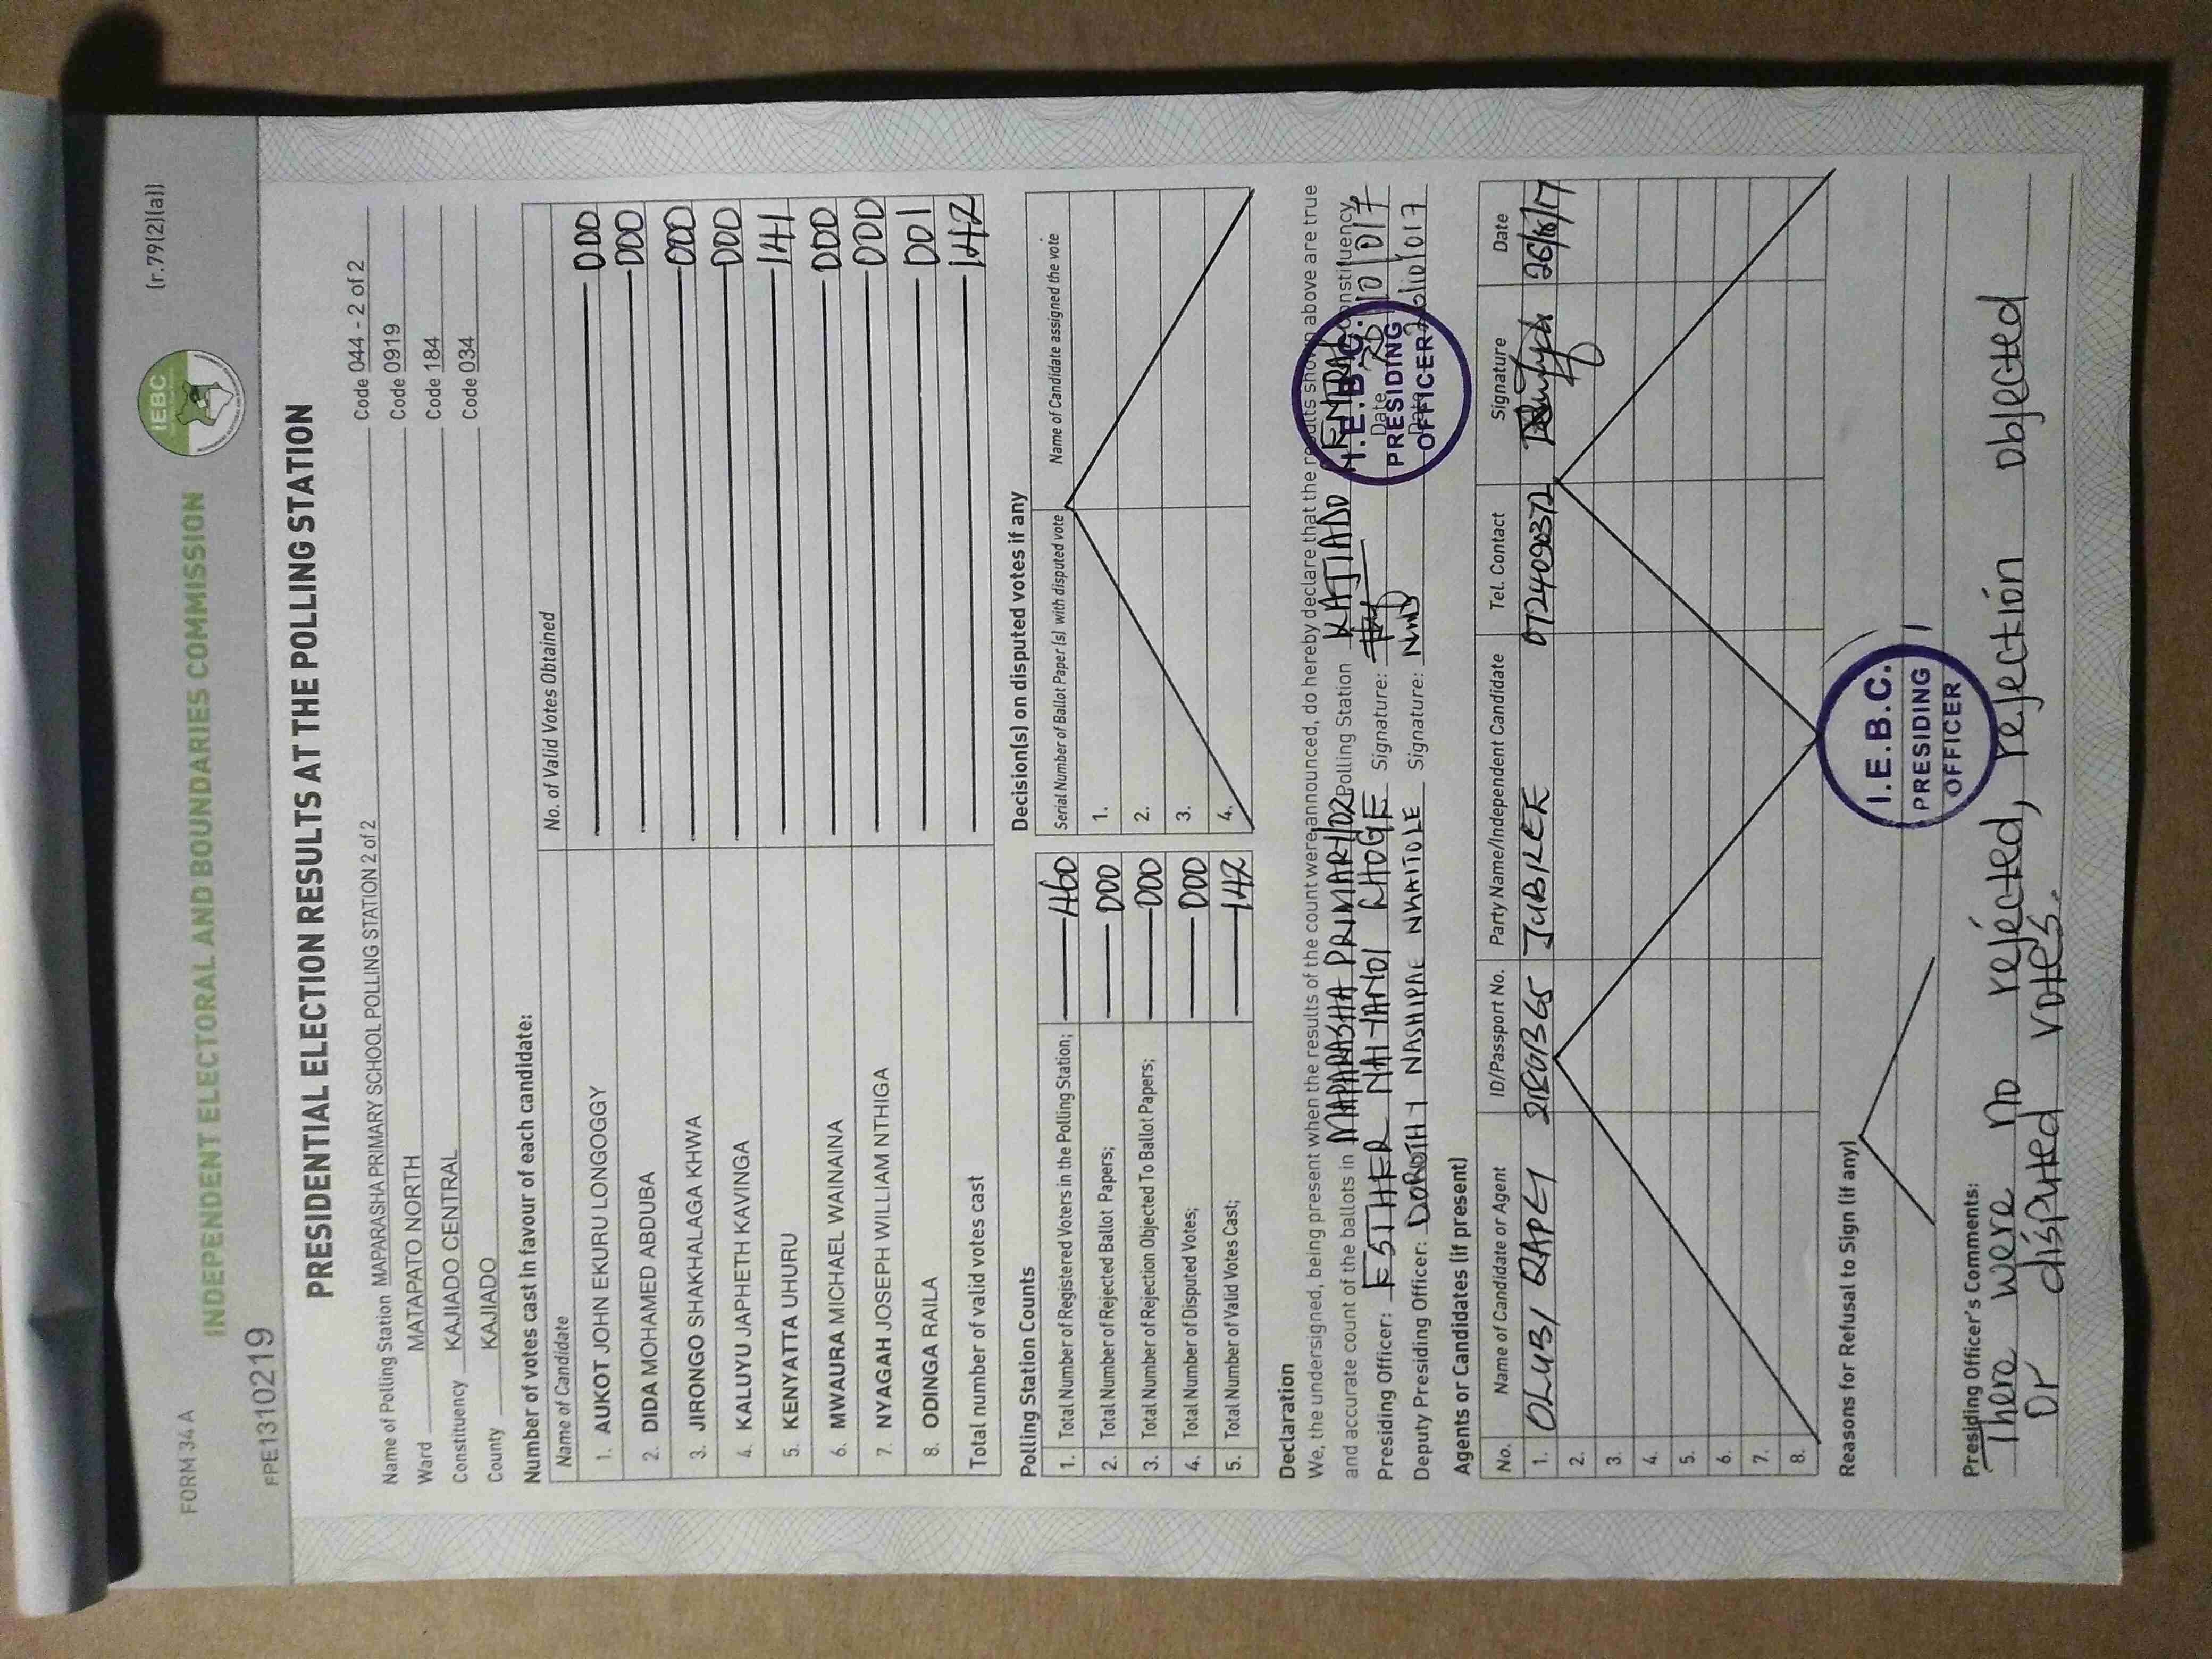 FORM 34 A
(r.79(2)(a))
IEBC
INDEPENDENT ELECTORAL AND BOUNDARIES COMMISSION
FPE1310219
PRESIDENTIAL ELECTION RESULTS AT THE POLLING STATION
Name of Polling Station MAPARASHA PRIMARY SCHOOL POLLING STATION 2 of 2 Code 044 - 2 of 2
Ward MATAPATO NORTH Code 0919
Constituency KAJIADO CENTRAL Code 184
County KAJIADO Code 034
Number of votes cast in favour of each candidate:
Name of Candidate No. of Valid Votes Obtained
1. AUKOT JOHN EKURU LONGOGGY 000
2. DIDA MOHAMED ABDUBA 000
3. JIRONGO SHAKHALAGA KHWA 000
4. KALUYU JAPHETH KAVINGA 000
5. KENYATTA UHURU 141
6. MWAURA MICHAEL WAINAINA 000
7. NYAGAH JOSEPH WILLIAM NTHIGA 000
8. ODINGA RAILA 001
Total number of valid votes cast 142
Polling Station Counts
1. Total Number of Registered Voters in the Polling Station; 460
2. Total Number of Rejected Ballot Papers; 000
3. Total Number of Rejection Objected To Ballot Papers; 000
4. Total Number of Disputed Votes; 000
5. Total Number of Valid Votes Cast; 142
Decision(s) on disputed votes if any
Serial Number of Ballot Paper (s) with disputed vote Name of Candidate assigned the vote
1.
2.
3.
4.
Declaration
We, the undersigned, being present when the results of the count were announced, do hereby declare that the results shown above are true
and accurate count of the ballots in MAPARASHA PRIMARY/02 Polling Station KAJIADO CENTRAL Constituency
Presiding Officer: ESTHER Signature: Date
Deputy Presiding Officer: DOROTHY NASHIPAE Signature: Date 26/10/017
I.E.B.C.
PRESIDING
OFFICER
Agents or Candidates (if present)
No. Name of Candidate or Agent ID/Passport No. Party Name/Independent Candidate Tel. Contact Signature Date
1. JUBILEE
2.
3.
4.
5.
6.
7.
8.
Reasons for Refusal to Sign (if any)
I.E.B.C.
PRESIDING
OFFICER
Presiding Officer's Comments:
There were no rejected, rejection objected
or disputed votes.